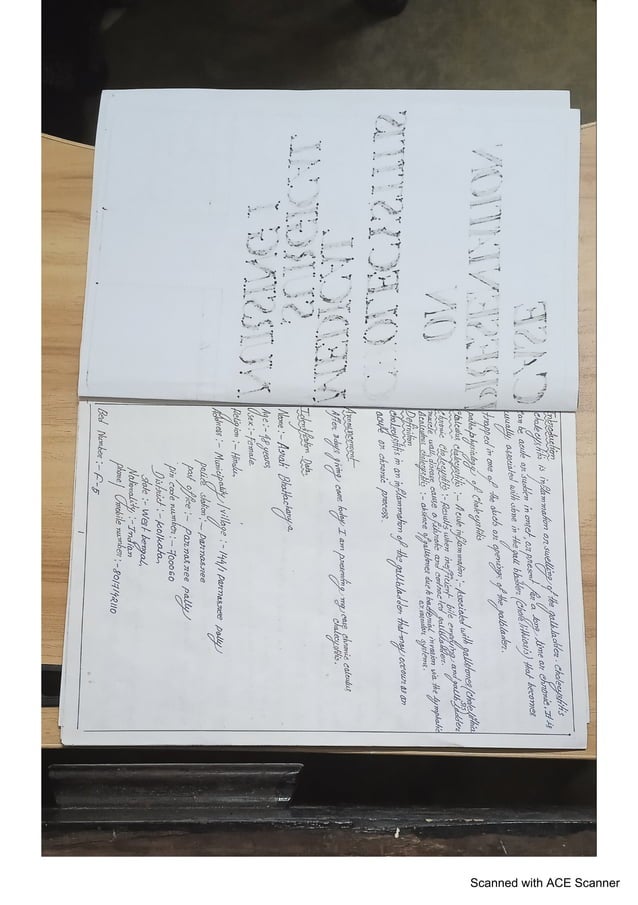 CASE
PRESENTATION
ON
CHOLECYSTITIS
MEDICAL
SURGICAL
NURSING I
Introduction
cholecystitis is inflammation or swelling of the gallbladder. cholecystitis
can be acute or sudden in onset, or present for a long time or chronic. It is
usually associated with stone in the gall bladder that becomes
trapped in one of the ducts or openings of the gallbladder.
pathophysiology of cholecystitis
calculus cholecystitis :- Acute inflammation :- Associated with gallstones/cholelithiasis
chronic cholecystitis :- Results when inefficient bile emptying and gallbladder
muscle wall disease cause a fibrotic and contracted gallbladder.
Acalculus cholecystitis :- absence of gallstones due to bacterial invasion via the lymphatic
or vascular systems.
Definition
cholecystitis in an inflammation of the gallbladder that may occur as an
acute or chronic process.
Announcement
After days giving care today I am presenting my case chronic calculus
cholecystitis.
Identification Data
Name :- Bhattacharya
Age :- years
Sex :- Female.
Religion :- Hindu.
Address :- Municipality / Village :- 144/1 Parnasree pally
police station :- parnasree
post office :- parnasree pally
pin code number :- 700060
District :- Kolkata,
State :- West bengal,
Nationality :- Indian
phone / mobile number :-
Bed Number :- F-5
1
Scanned with ACE Scanner